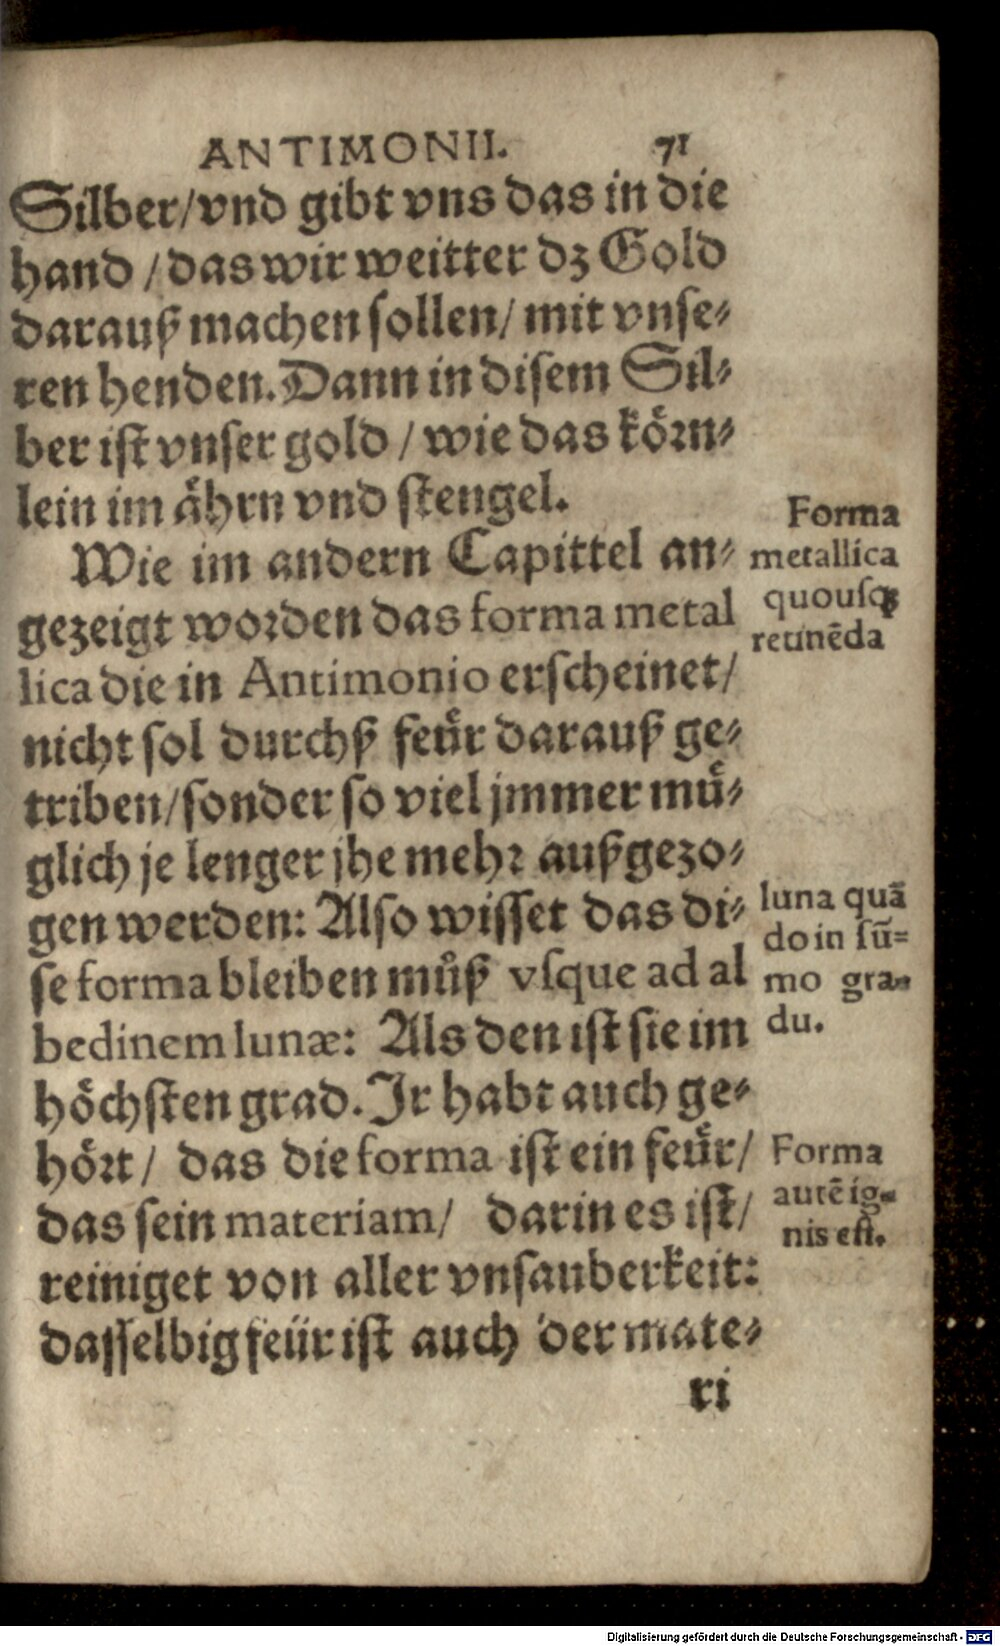 ANTIMONII. 71
Silber/vnd gibt vns das in die
hand / das wir weitter dz Gold
darauß machen sollen/ mit vnse⸗
ren henden. Dann in disem Sil⸗
ber ist vnser gold / wie das koͤrn⸗
lein im aͤhrn vnd stengel.
Wie im andern Capittel an⸗
gezeigt worden das forma metal
lica die in Antimonio erscheinet/
nicht sol durchß feuͤr darauß ge⸗
triben/sonder so viel jmmer muͤ⸗
glich je lenger jhe mehr außgezo⸗
gen werden: Also wisset das di⸗
se forma bleiben muͦß vsque ad al
bedinem lunæ: Als den ist sie im
hoͤchsten grad. Jr habt auch ge⸗
hoͤrt / das die forma ist ein feuͤr/
das sein materiam/ darin es ist/
reiniget von aller vnsauberkeit:
dasselbig feuͤr ist auch der mate⸗
ri
Forma
metallica
quousqꝫ
retinēda
luna quā
do in sū=
mo gra=
du.
Forma
autē ig=
nis est.
Digitalisierung gefördert durch die Deutsche Forschungsgemeinschaft - DFG